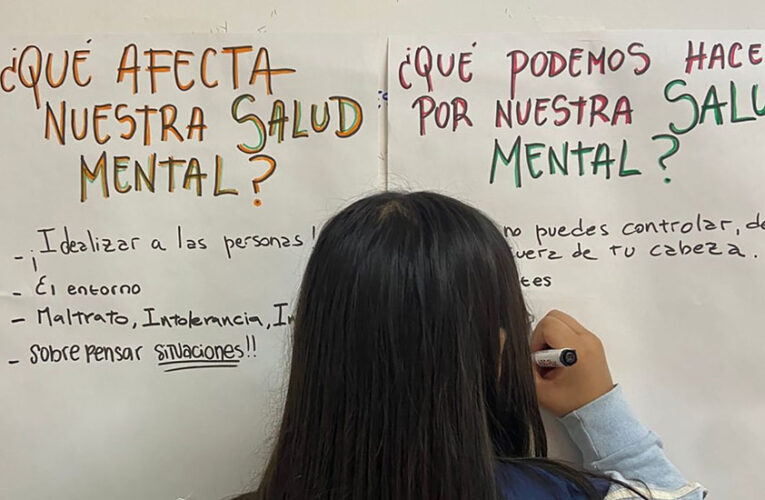 ¿QUÉ AFECTA
NUESTRA SALUD
MENTAL?
- ¡Idealizar a las personas!
- El entorno
- Maltrato, Intolerancia,
- Sobrepensar SITUACIONES!!
¿QUÉ PODEMOS HACE
POR NUESTRA SALU
MENTAL?
no puedes controlar, de
uera de tu cabeza.
tes